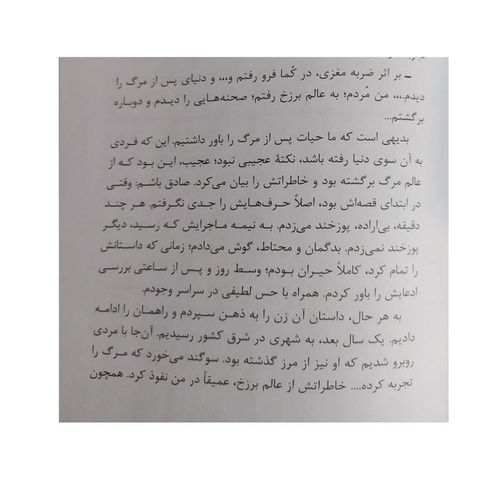 ـ بر اثر ضربه مغزی، در کُما فرو رفتم و،،،، و دنیای پس از مرگ را
دیدم.،،، من مُردم؛ به عالم برزخ رفتم؛ صحنه‌هایی را دیدم و دوباره
برگشتم...
بدیهی است که ما حیات پس از مرگ را باور داشتیم. این که فردی
به آن سوی دنیا رفته باشد، نکتهٔ عجیبی نبود؛ عجیب، این بود که از
عالم مرگ برگشته بود و خاطراتش را بیان می‌کرد. صادق باشم: وقتی
در ابتدای قصه‌اش بود، اصلاً حرف‌هایش را جدی نگرفتم. هر چند
دقیقه، بی‌اراده، پوزخند می‌زدم. به نیمه ماجرایش که رسید، دیگر
پوزخند نمی‌زدم. بدگمان و محتاط، گوش می‌دادم؛ زمانی که داستانش
را تمام کرد، کاملاً حیران بودم؛ وسط روز و پس از ساعتی بررسی
ادعایش را باور کردم. همراه با حس لطیفی در سراسر وجودم.
به هر حال، داستان آن زن را به ذهن سپردم و راهمان را ادامه
دادیم. یک سال بعد، به شهری در شرق کشور رسیدیم. آن‌جا با مردی
روبرو شدیم که او نیز از مرز گذشته بود. سوگند می‌خورد که مرگ را
تجربه کرده.... خاطراتش از عالم برزخ، عمیقاً در من نفوذ کرد. همچون